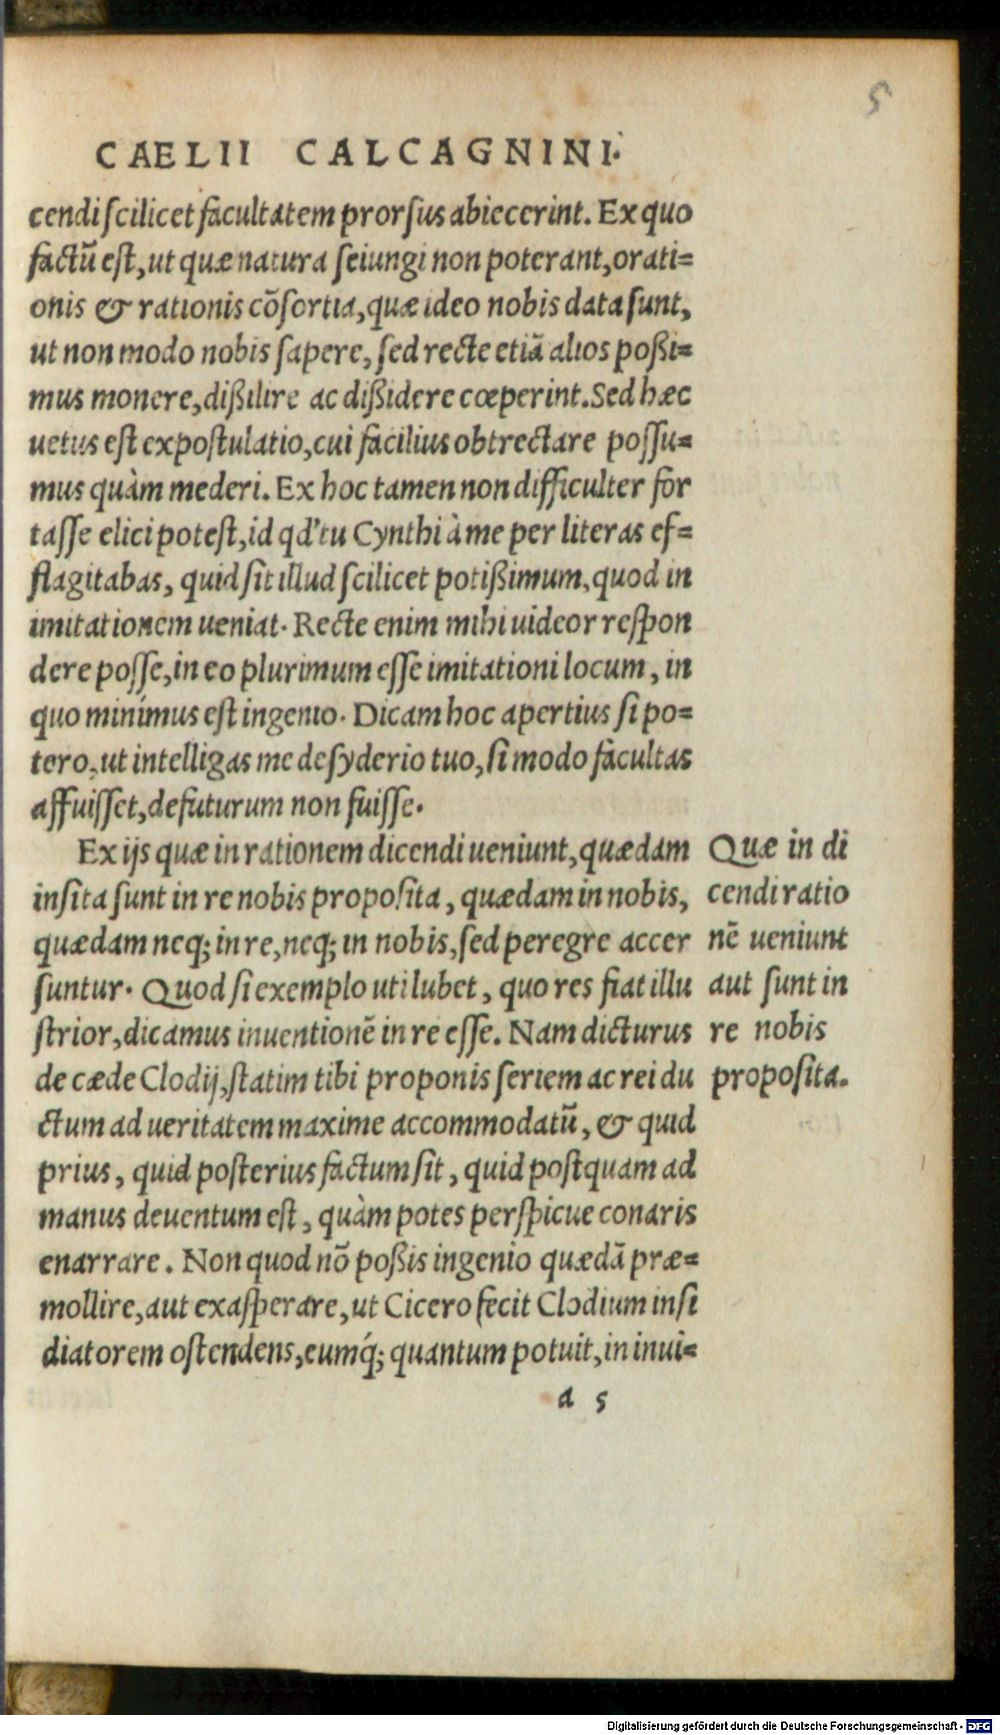 5
CAELII CALCAGNINI.
cendi scilicet facultatem prorsus abiecerint. Ex quo
factũ est, ut quæ natura seiungi non poterant, orati=
onis & rationis cõsortia, quæ ideo nobis data sunt,
ut non modo nobis sapere, sed recte etiã alios poßi=
mus monere, dißilire ac dißidere cœperint. Sed hæc
uetus est expostulatio, cui facilius obtrectare possu=
mus quàm mederi. Ex hoc tamen non difficulter for
tasse elici potest, id qd' tu Cynthi à me per literas ef=
flagitabas, quid sit illud scilicet potißimum, quod in
imitationem ueniat. Recte enim mihi uideor respon
dere posse, in eo plurimum esse imitationi locum, in
quo minímus est ingenio. Dicam hoc apertius si po=
tero, ut intelligas me desyderio tuo, si modo facultas
affuisset, defuturum non fuisse.
Ex ijs quæ in rationem dicendi ueniunt, quædam
insita sunt in re nobis proposita, quædam in nobis,
quædam neq; in re, neq; in nobis, sed peregre accer
suntur. Quod si exemplo uti lubet, quo res fiat illu
strior, dicamus inuentionẽ in re esse. Nam dicturus
de cæde Clodij, statim tibi proponis seriem ac rei du
ctum ad ueritatem maxime accommodatũ, & quid
prius, quid posterius factum sit, quid postquam ad
manus deuentum est, quàm potes perspicue conaris
enarrare. Non quod nõ poßis ingenio quædã præ=
mollire, aut exasperare, ut Cicero fecit Clodium insi
diatorem ostendens, eumq́; quantum potuit, in inui=
Quæ in di
cendi ratio
nẽ ueniunt
aut sunt in
re nobis
proposita.
a 5
Digitalisierung gefördert durch die Deutsche Forschungsgemeinschaft - DFG